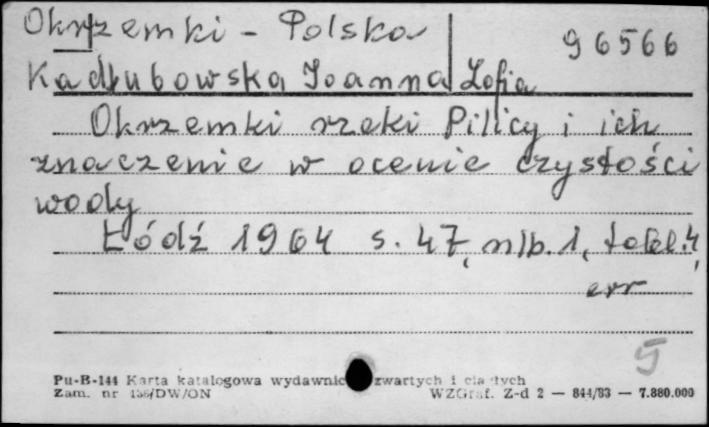 Okrzemki - Polska
96566
Kadłubowska Joanna Zofia
Okrzemki rzeki Pilicy i ich
znaczenie w ocenie czystości
wody
Łódź 1964 s. 47, nlb. 1, tabl. 4,
err
5
Pu-B-144 Karta katalogowa wydawnic zwartych i cią łych
Zam. nr 156/DW/ON WZGraf. Z-d 2 — 844/83 — 7.880.000